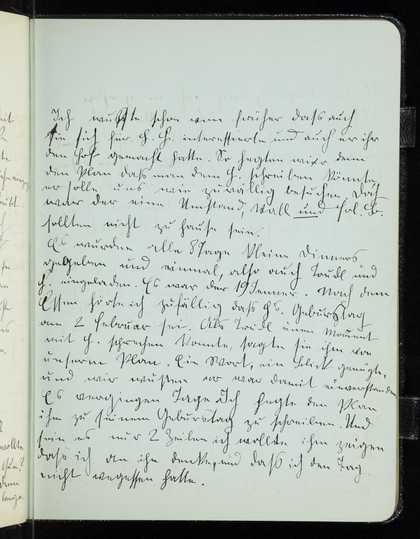 Ich wußte schon von früher dass auch
sie sich für G. H. interessierte und auch er ihr
den Hof gemacht hatte. So hegten wir dem
den Plan dass man dem G. schreiben könnte,
er solle uns wie zufällig besuchen. Das
war der eine Umstand, Wall und Frl. B.
sollten nicht zu hause sein.
Es wurden alle 8 Tage kleine Dinners
gegeben und einmal, also auch Trudl und
G. eingeladen. Es war der 19 Jenner. Nach dem
Essen hörte ich zufällig dass Gs. Geburtstag
am 2 Februar sei. Als Trudl einen Moment
mit G. sprechen konnte, sagte sie ihm von
unserem Plan. Ein Wort, ein Blick genügte,
und wir wussten er war damit einverstanden
Es vergingen Tage. Ich hegte den Plan
ihm zu seinem Geburtstag zu schreiben. Und
seien es nur 2 Zeilen ich wollte ihm zeigen
dass ich an ihn denke, und dass ich den Tag
nicht vergessen hatte.